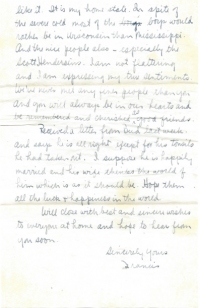 like it. It is my home state. In spite of
the severe cold most of the boys would
rather be in Wisconsin than Mississippi.
And the nice people also - especially the
Scott Hendersons. I am not flattering
and I am expressing my true sentiments
We've never met any finer people
And you will always be in our hearts and
be remembered and cherished as friends.
Received letter from Bud last week
and says he is all right except for his tonsils
he had taken out. I suppose he is happily
married and his wife thinks the world of
him which is as it should be. Hope them
all the luck & happiness in the world.
Will close with best and sincere wishes
to everyone at home and hope to hear from
you soon.
Sincerely yours
Francis